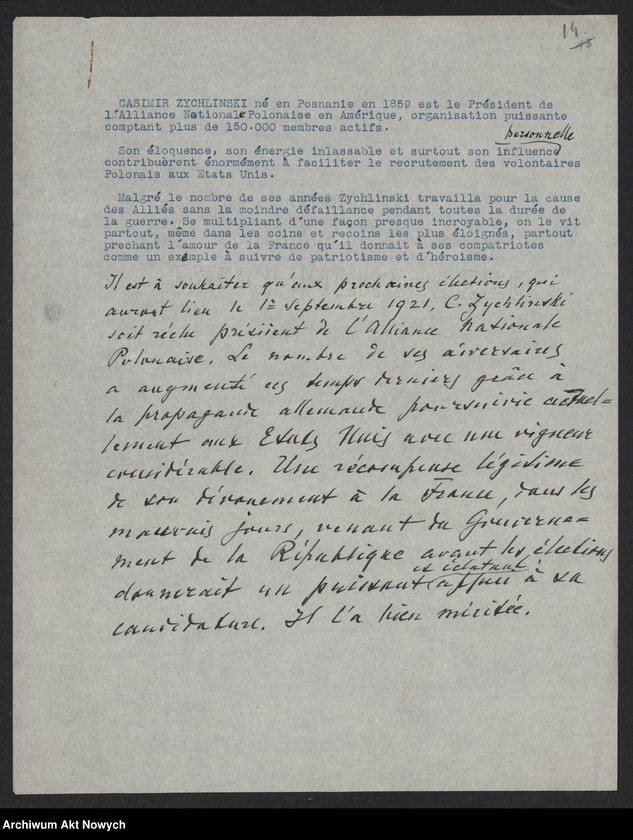 14.
15
CASIMIR ZYCHLINSKI né en Posnanie en 1859 est le Président de
l'Alliance Nationale Polonaise en Amérique, organisation puissante
comptant plus de 150.000 membres actifs.
personnelle
Son éloquence, son énergie inlassable et surtout son influence
contribuèrent énormément à faciliter le recrutement des volontaires
Polonais aux Etats Unis.
Malgré le nombre de ses années Zychlinski travailla pour la cause
des Alliés sans la moindre défaillance pendant toutes la durée de
la guerre. Se multipliant d'une façon presque incroyable, on le vit
partout, même dans les coins et recoins les plus éloignés, partout
prechant l'amour de la France qu'il donnait à ses compatriotes
comme un exemple à suivre de patriotisme et d'héroisme.
Il est à souhaiter qu'aux prochaines élections, qui
auront lieu le 1er Septembre 1921, C. Zychlinski
soit réélu président de l'Alliance Nationale
Polonaise. Le nombre de ses adversaires
a augmenté ces temps derniers grâce à
la propagande allemande poursuivie actuel=
lement aux Etats Unis avec une vigueur
considérable. Une récompense légitime
de son dévouement à la France, dans les
mauvais jours, venant du Gouverne=
ment de la République avant les élections
et éclatant
donnerait un puissant appui à sa
candidature. Il l'a bien méritée.
Archiwum Akt Nowych